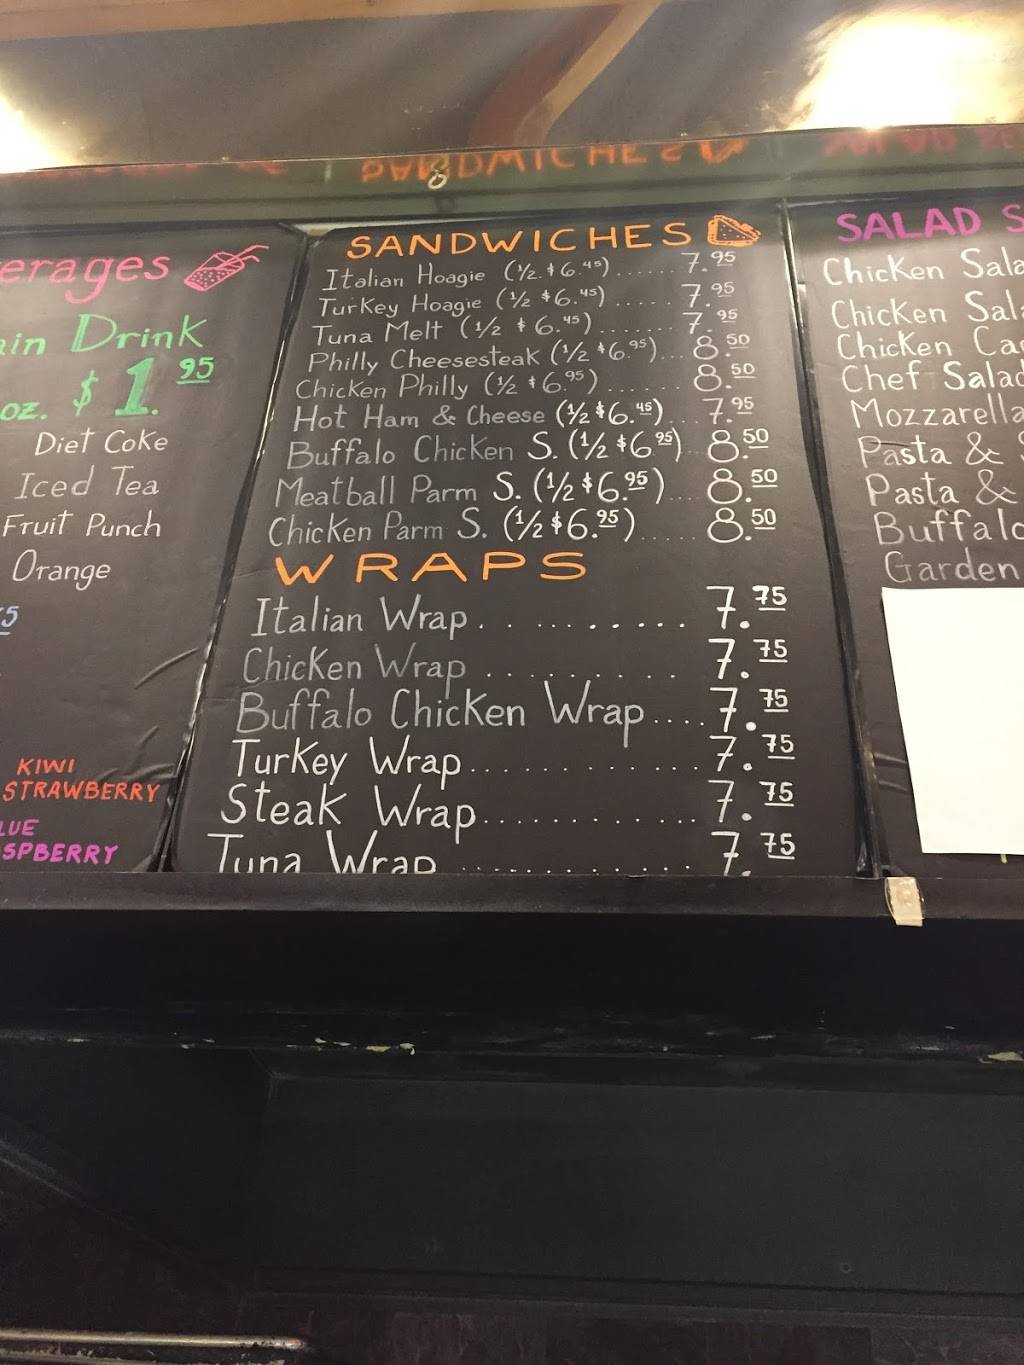 erages
ain Drink
oz. $1.95
Diet Coke
Iced Tea
Fruit Punch
Orange
5
KIWI
STRAWBERRY
LUE
SPBERRY
SANDWICHES
Italian Hoagie (1/2 $6.45)...... 7.95
Turkey Hoagie (1/2 $6.45) ..... 7.95
Tuna Melt (1/2 $6.45)........ 7.95
Philly Cheesesteak (1/2 $6.95)... 8.50
Chicken Philly (1/2 $6.95) ....... 8.50
Hot Ham & Cheese (1/2 $6.45)... 7.95
Buffalo Chicken S. (1/2 $6.95) 8.50
Meatball Parm S. (1/2 $6.95)... 8.50
Chicken Parm S. (1/2 $6.95)..... 8.50
WRAPS
Italian Wrap.......... 7.75
Chicken Wrap ......... 7.75
Buffalo Chicken Wrap.... 7.75
Turkey Wrap............ 7.75
Steak Wrap............. 7.75
Tuna Wrap ............ 7.75
SALAD S
Chicken Sala
Chicken Sala
Chicken Cae
Chef Salad
Mozzarella
Pasta & S
Pasta &
Buffalo
Garden